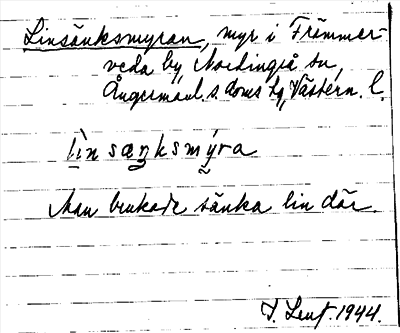 Linsänksmyran, myr i Främmer-
veda by, Nordingrå sn,
Ångermanl. s. doms. hg, Västern. l.
lìnsæŋksmýra
Man brukade sänka lin där.
1944.